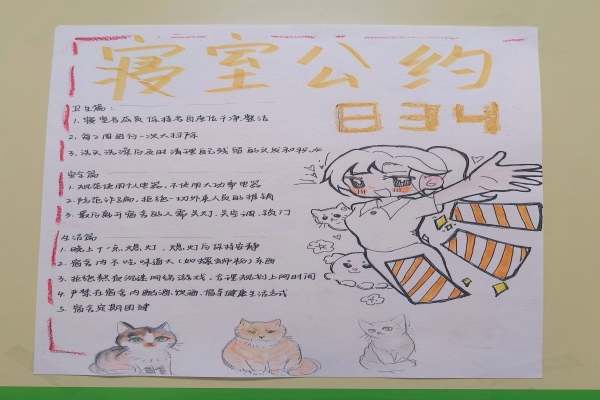 寝室公约
B34
卫生篇:
1. 寝室书成员保持各自座位干净、整洁
2. 每2周进行一次大扫除
3. 洗头洗澡后及时清理自己残留的头发和积水
安全篇
1. 规范使用个人电器,不使用大功率电器
2. 防范诈骗,拒绝一切外来人员的推销
3. 最后离开宿舍的人需关灯、关空调、锁门
生活篇
1. 晚上十一点熄灯,熄灯后保持安静
2. 宿舍内不吃味道大(如螺蛳粉)东西
3. 拒绝熬夜沉迷网络游戏,合理规划上网时间
4. 严禁在宿舍内酗酒、饮酒,倡导健康生活方式
5. 宿舍定期团建